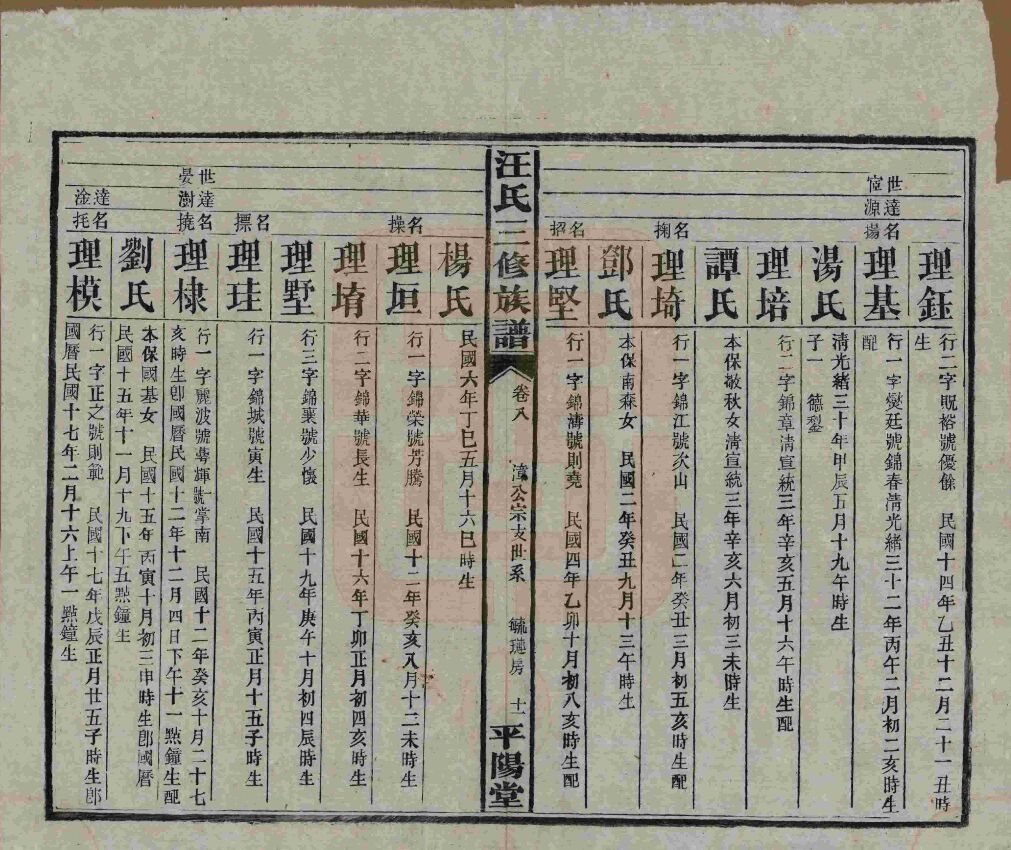 理鈺
行二字既裕號優餘　民國十四年乙丑十二月二十一丑時
生
世宦
達源
名揚
理基
行一字燮廷號錦春清光緒三十二年丙午二月初二亥時生
配
湯氏
清光緒三十年甲辰五月十九午時生
子一　德
理培
行二字錦章清宣統三年辛亥五月十六午時生配
譚氏
本保敬秋女清宣統三年辛亥六月初三未時生
名掬
理埼
行一字錦江號次山　民國二年癸丑三月初五亥時生配
鄧氏
本保甫森女　民國二年癸丑九月十三午時生
名招
理堅
行一字錦濤號則堯　民國四年乙卯十月初八亥時生配
汪氏三修族譜
卷八　漳公宗支世系　毓璉房　十一
平陽堂
楊氏
民國六年丁巳五月十六巳時生
名操
理垣
行一字錦榮號芳騰　民國十二年癸亥八月十二未時生
理堉
行二字錦華號長生　民國十六年丁卯正月初四亥時生
理墅
行三字錦襄號少懷　民國十九年庚午十月初四辰時生
名摽
理珪
行一字錦城號寅生　民國十五年丙寅正月十五子時生
世晏
達澍
名撓
理棣
行一字麗波號萼輝號掌南　民國十二年癸亥十月二十七
亥時生卽國曆民國十二年十二月四日下午十一點鐘生配
劉氏
本保國基女　民國十五年丙寅十月初三申時生卽國曆
民國十五年十一月十九下午五點鐘生
達淦
名托
理模
行一字正之號則範　民國十七年戊辰正月廿五子時生卽
國曆民國十七年二月十六上午一點鐘生